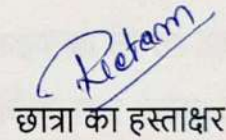 Reetam
छात्रा का हस्ताक्षर